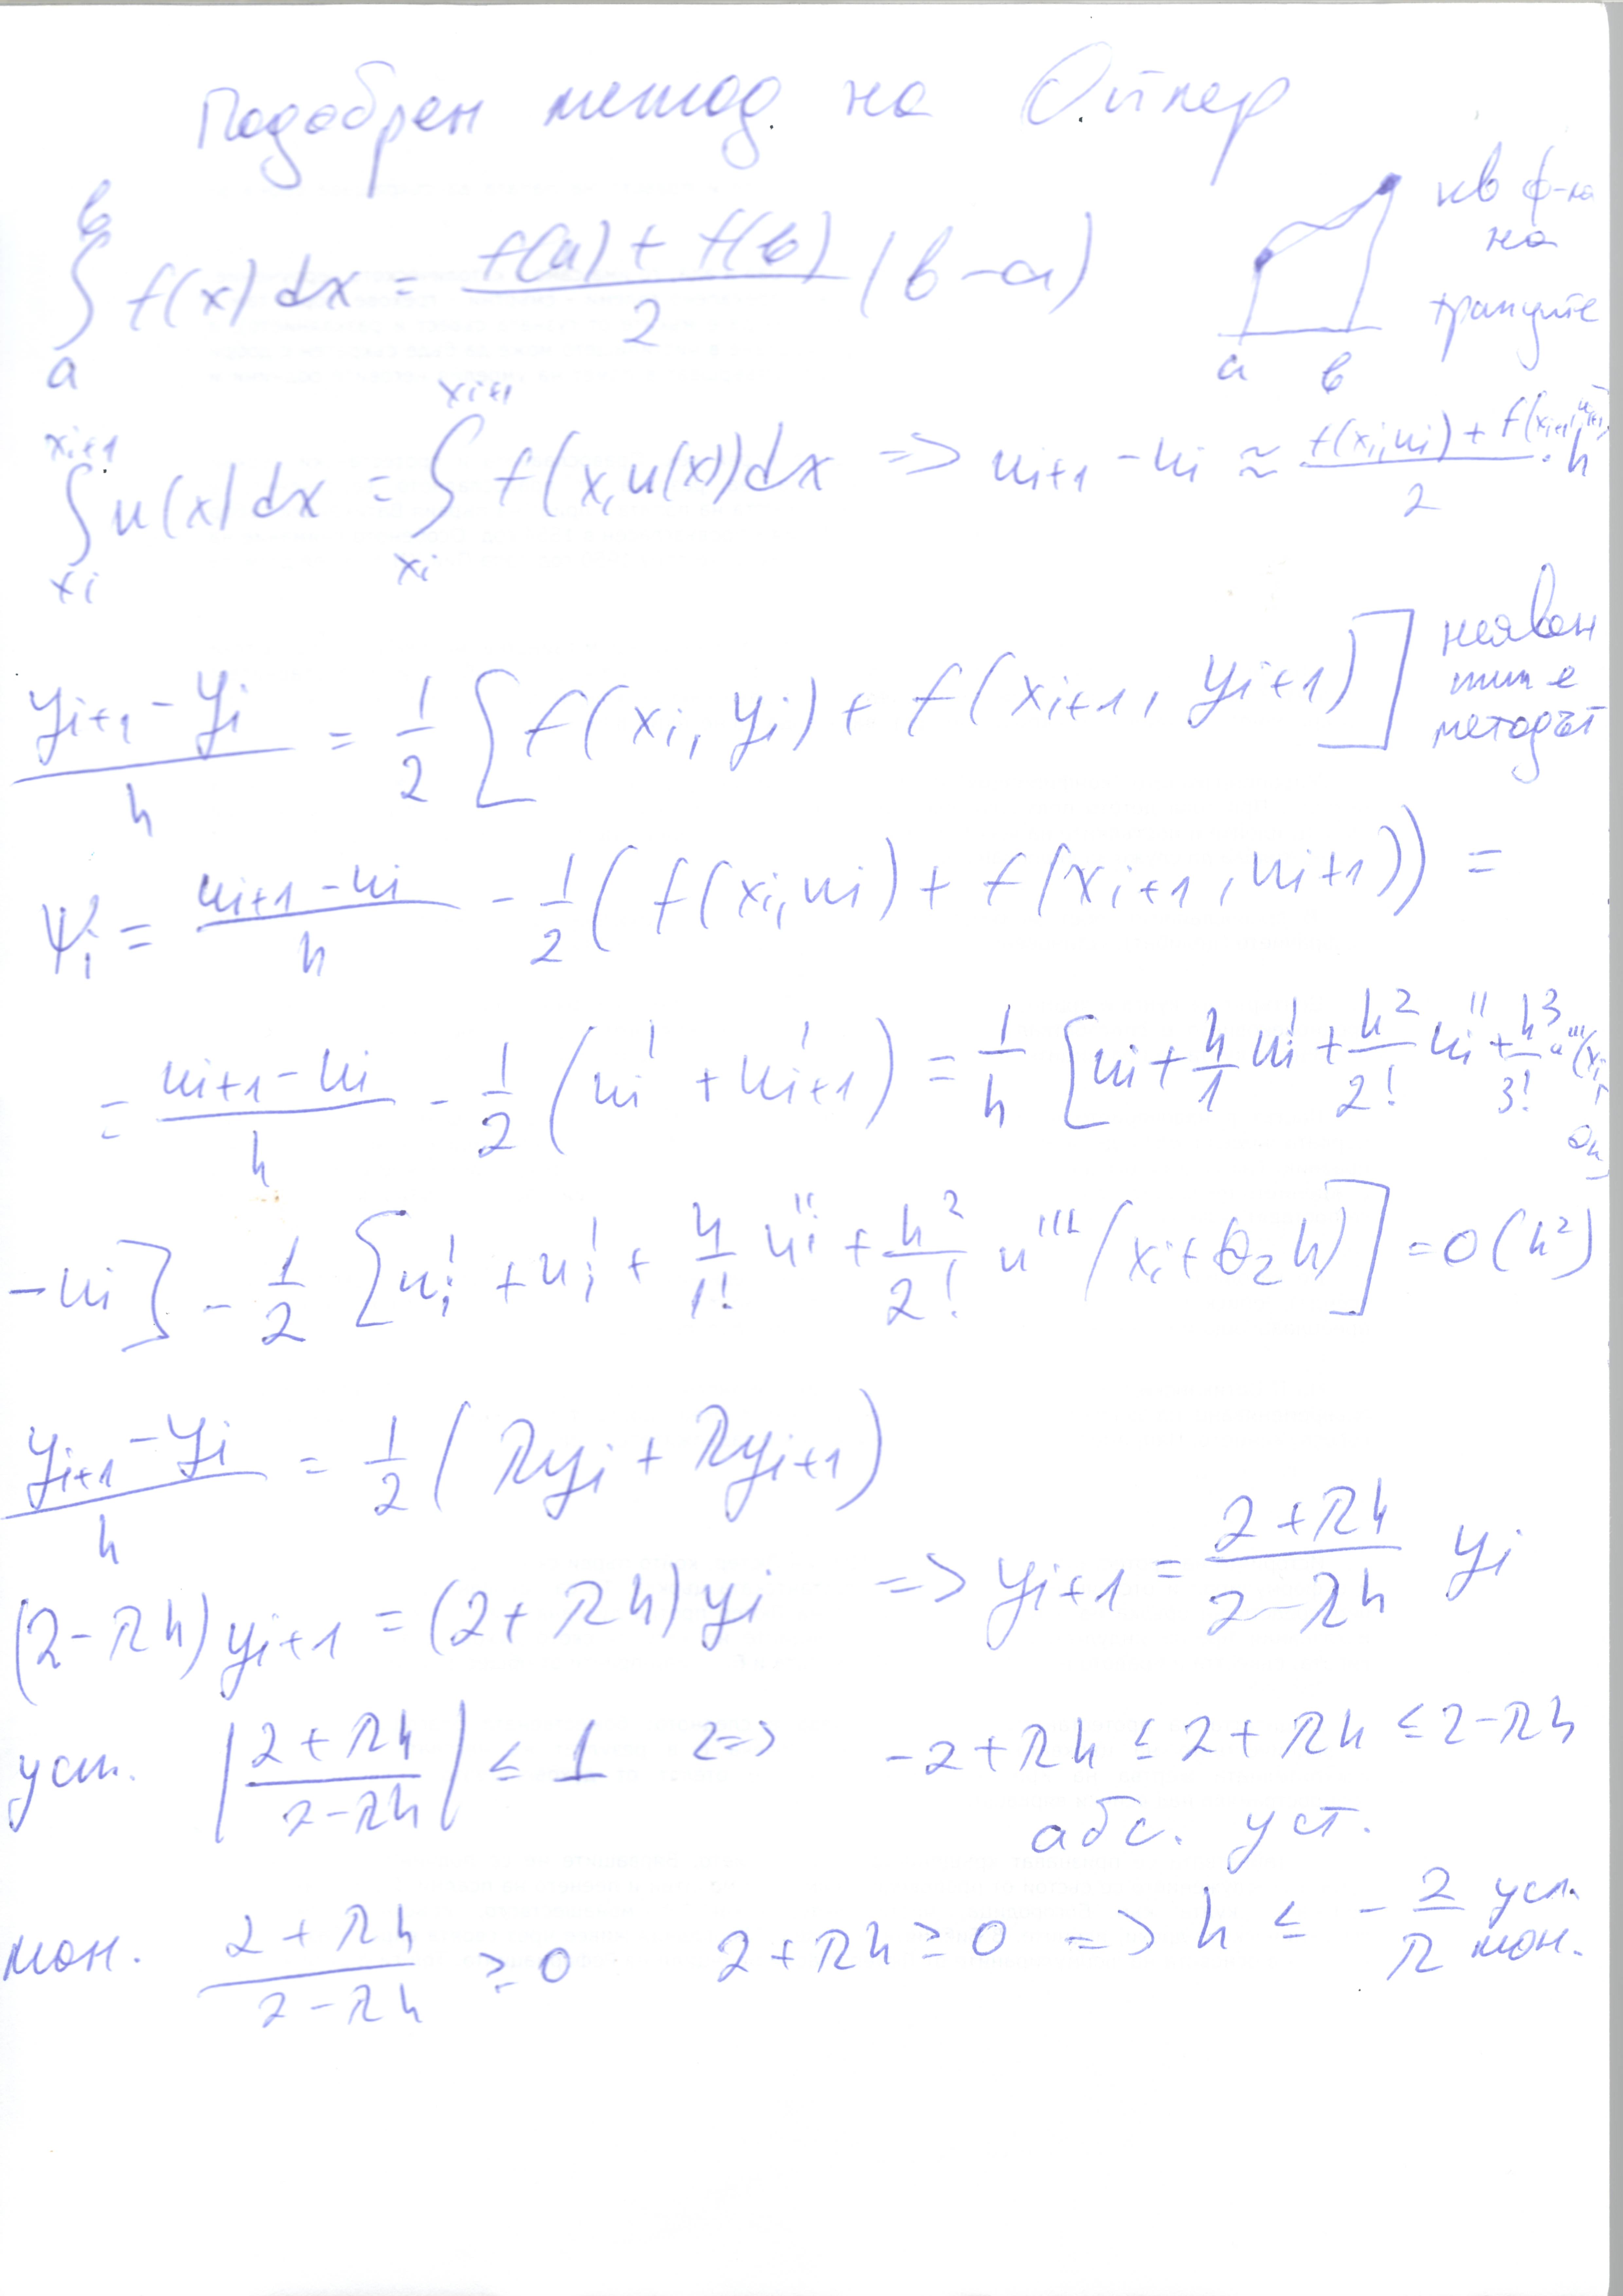 Подобрен метод на Ойлер
∫_a^b f(x) dx = (f(a) + f(b))/2 (b-a)
кв ф-ла
на
трапците
a b
∫_{x_i}^{x_{i+1}} u(x) dx = ∫_{x_i}^{x_{i+1}} f(x, u(x)) dx => u_{i+1} - u_i ≈ (f(x_i, u_i) + f(x_{i+1}, u_{i+1}))/2 · h
(y_{i+1} - y_i)/h = 1/2 [f(x_i, y_i) + f(x_{i+1}, y_{i+1})]
неявен
тип е
методът
ψ_i = (u_{i+1} - u_i)/h - 1/2 (f(x_i, u_i) + f(x_{i+1}, u_{i+1})) =
= (u_{i+1} - u_i)/h - 1/2 (u_i' + u'_{i+1}) = 1/h [u_i + h/1 u_i' + h²/2! u_i'' + h³/3! u'''(x_i + θh)
- u_i] - 1/2 [u_i' + u_i' + h/1! u_i'' + h²/2! u'''(x_i + θ_2 h)] = 0(h²)
(y_{i+1} - y_i)/h = 1/2 (λy_i + λy_{i+1})
(2-λh) y_{i+1} = (2+λh) y_i => y_{i+1} = (2+λh)/(2-λh) y_i
уст. |(2+λh)/(2-λh)| ≤ 1 <=> -2+λh ≤ 2+λh ≤ 2-λh
абс. уст.
мон. (2+λh)/(2-λh) ≥ 0 2+λh ≥ 0 => h ≤ - 2/λ усл. мон.